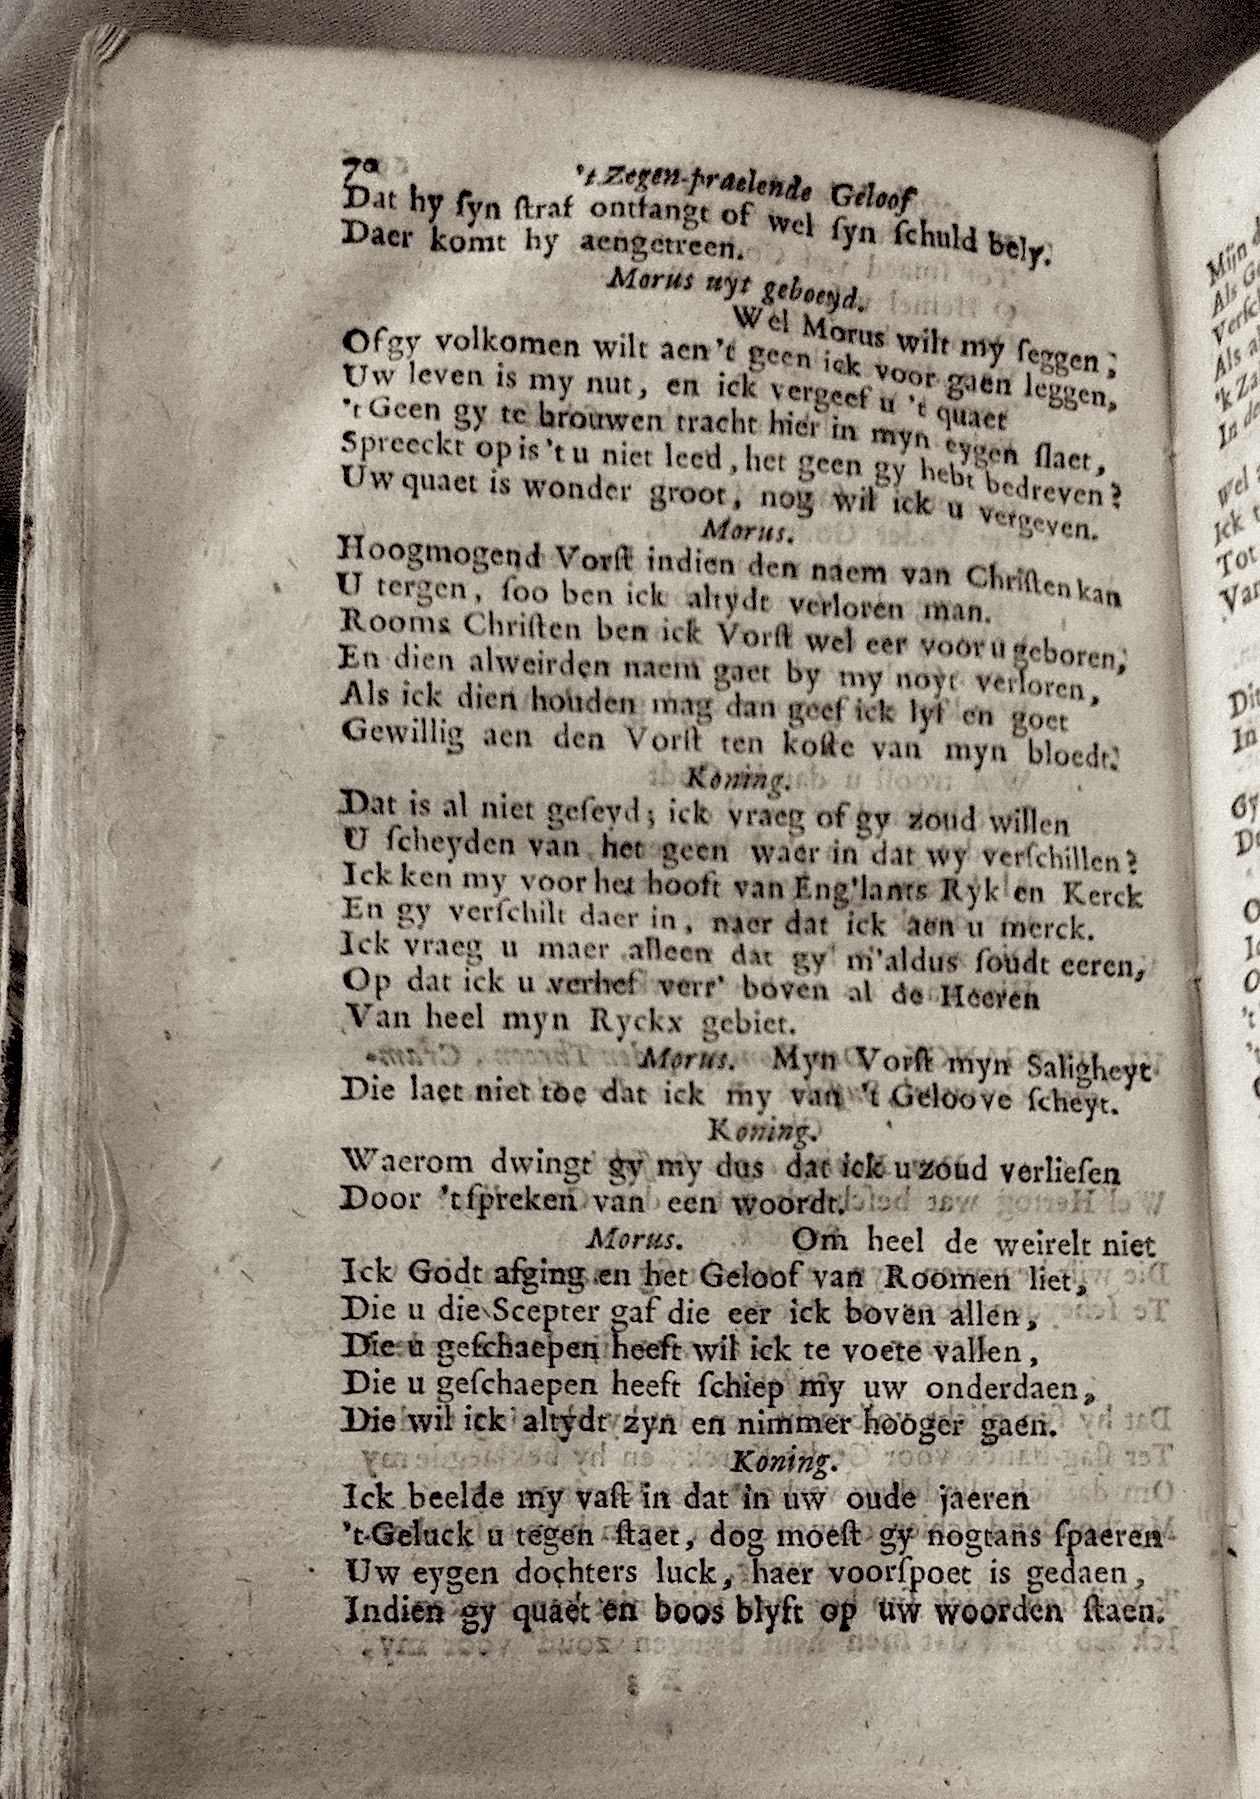 70 't Zegen-praelende Geloof
Dat hy ſyn ſtraf ontfangt of wel ſyn ſchuld bely.
Daer komt hy aengetreen.
Morus uyt geboeyd.
Wel Morus wilt my ſeggen;
Ofgy volkomen wilt aen 't geen ick voor gaen leggen,
Uw leven is my nut, en ick vergeef u 't quaet
't Geen gy te brouwen tracht hier in myn eygen ſlaet,
Spreeckt op is 't u niet leed, het geen gy hebt bedreven?
Uw quaet is wonder groot, nog wil ick u vergeven.
Morus.
Hoogmogend Vorſt indien den naem van Chriſten kan
U tergen, ſoo ben ick altydt verloren man.
Rooms Chriſten ben ick Vorſt wel eer voor u geboren,
En dien alweirden naem gaet by my noyt verloren,
Als ick dien houden mag dan geef ick lyf en goet
Gewillig aen den Vorſt ten koſte van myn bloedt.
Koning.
Dat is al niet geſeyd; ick vraeg of gy zoud willen
U ſcheyden van het geen waer in dat wy verſchillen?
Ick ken my voor het hooft van Eng'lants Ryk en Kerck
En gy verſchilt daer in, naer dat ick aen u merck.
Ick vraeg u maer alleen dat gy m'aldus ſoudt eeren,
Op dat ick u verhef verr' boven al de Heeren
Van heel myn Ryckx gebiet.
Morus. Myn Vorſt myn Saligheyt
Die laet niet toe dat ick my van 't Geloove ſcheyt.
Koning.
Waerom dwingt gy my dus dat ick u zoud verlieſen
Door 't ſpreken van een woordt.
Morus. Om heel de weirelt niet
Ick Godt afging en het Geloof van Roomen liet,
Die u die Scepter gaf die eer ick boven allen,
Die u geſchaepen heeft wil ick te voete vallen,
Die u geſchaepen heeft ſchiep my uw onderdaen,
Die wil ick altydt zyn en nimmer hooger gaen.
Koning.
Ick beelde my vaſt in dat in uw oude jaeren
't Geluck u tegen ſtaet, dog moeſt gy nogtans ſpaeren
Uw eygen dochters luck, haer voorſpoet is gedaen,
Indien gy quaet en boos blyft op uw woorden ſtaen.